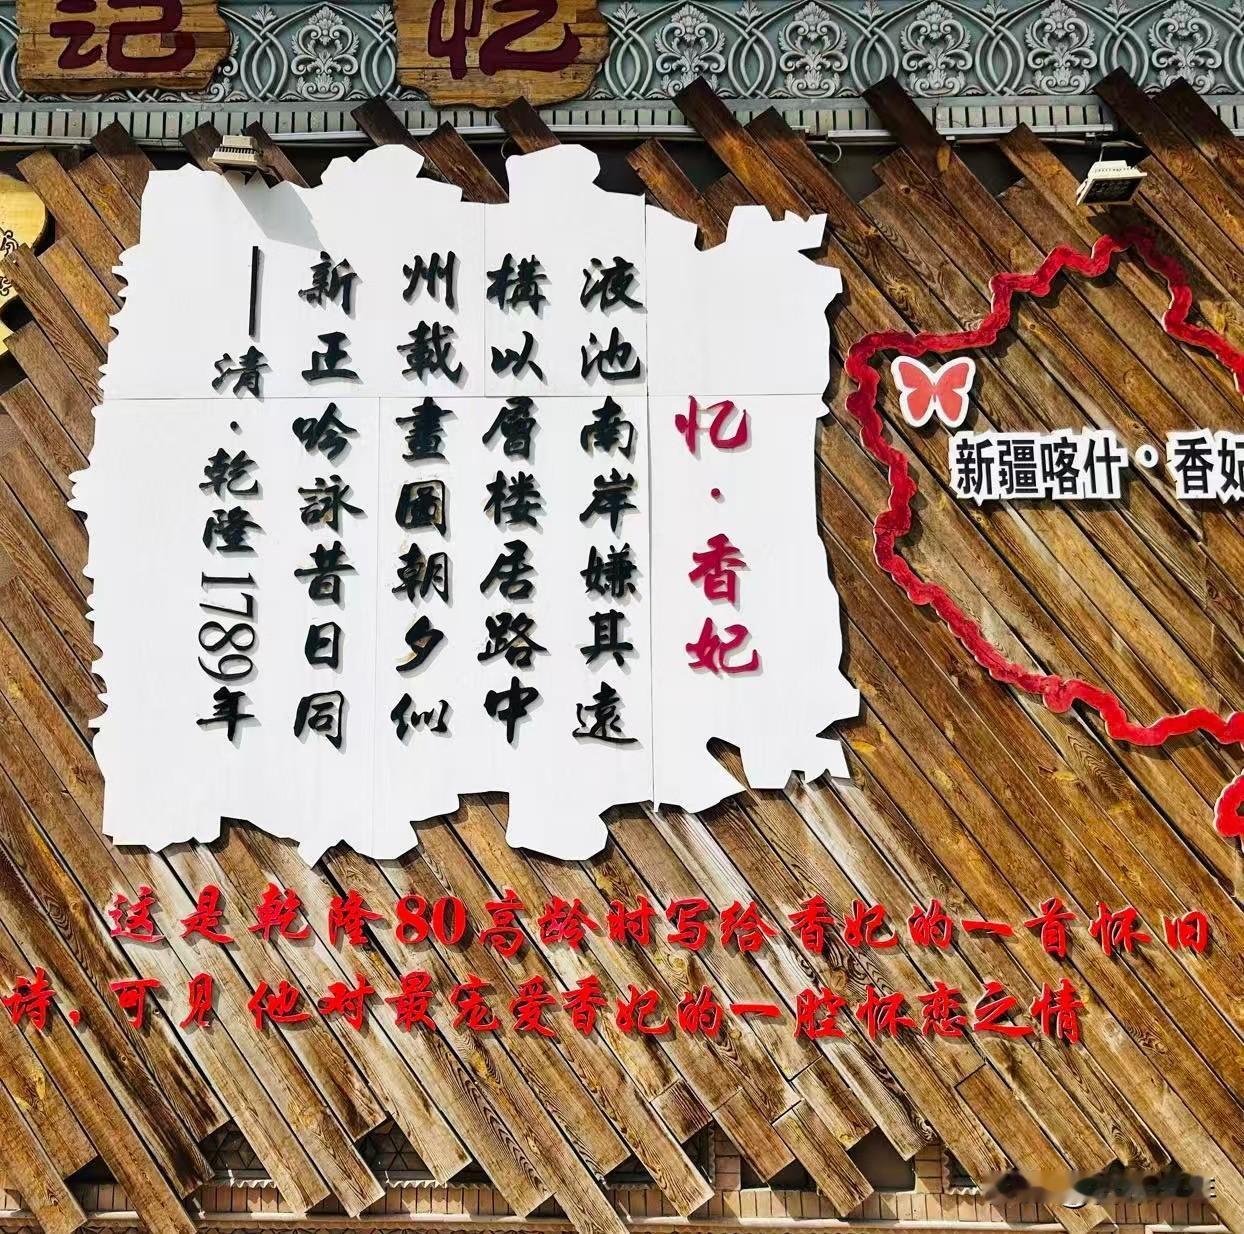 记忆
忆·香妃
液池南岸嫌其遠
構以層楼居路中
州載畫圖朝夕似
新正吟詠昔日同
——清·乾隆1789年
新疆喀什·香妃
这是乾隆80高龄时写给香妃的一首怀旧
诗,可见他对最宠爱香妃的一腔怀恋之情